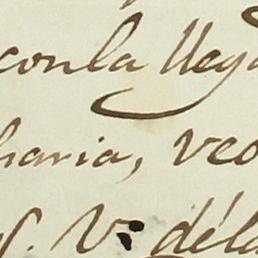 con la lleg
haria, veo
V. déla